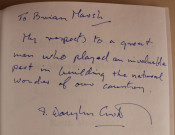 To Brian Marsh
My respects to a great
man who played an invaluable
part in building the natural
wonder of our country.
Douglas